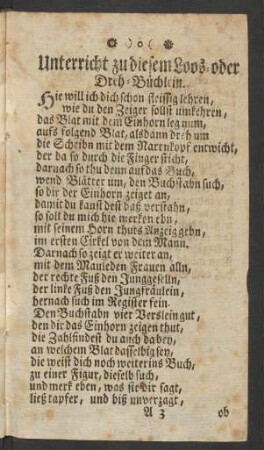 )o(
Unterricht zu diesem Looß- oder
Dreh-Büchlein.
Hie will ich dich schon fleissig lehren,
wie du den Zeiger sollst umkehren,
das Blat mit dem Einhorn leg num,
aufs folgend Blat, alsdann dreh um
die Scheibn mit dem Narrnkopf entwicht,
der da so durch die Finger sicht,
darnach so thu denn auf das Buch,
wend Blätter um, den Buchstabn such,
so dir der Einhorn zeiget an,
damit du kanst dest baß verstahn,
so solt du mich hie mercken ebn,
mit seinem Horn thuts Anzeig gebn,
im ersten Cirkel von dem Mann.
Darnach so zeigt er weiter an,
mit dem Maul den Frauen alln,
der rechte Fuß den Junggeselln,
der linke Fuß den Jungfräulein,
hernach such im Register fein.
Den Buchstabn vier Verslein gut,
den dir das Einhorn zeigen thut,
die Zahl findest du auch dabey,
an welchem Blat dasselbig sey,
die weist dich noch weiter ins Buch,
zu einer Figur, dieselb such,
und merk eben, was sie dir sagt,
ließ tapfer, und biß unverzagt,
A 3 ob